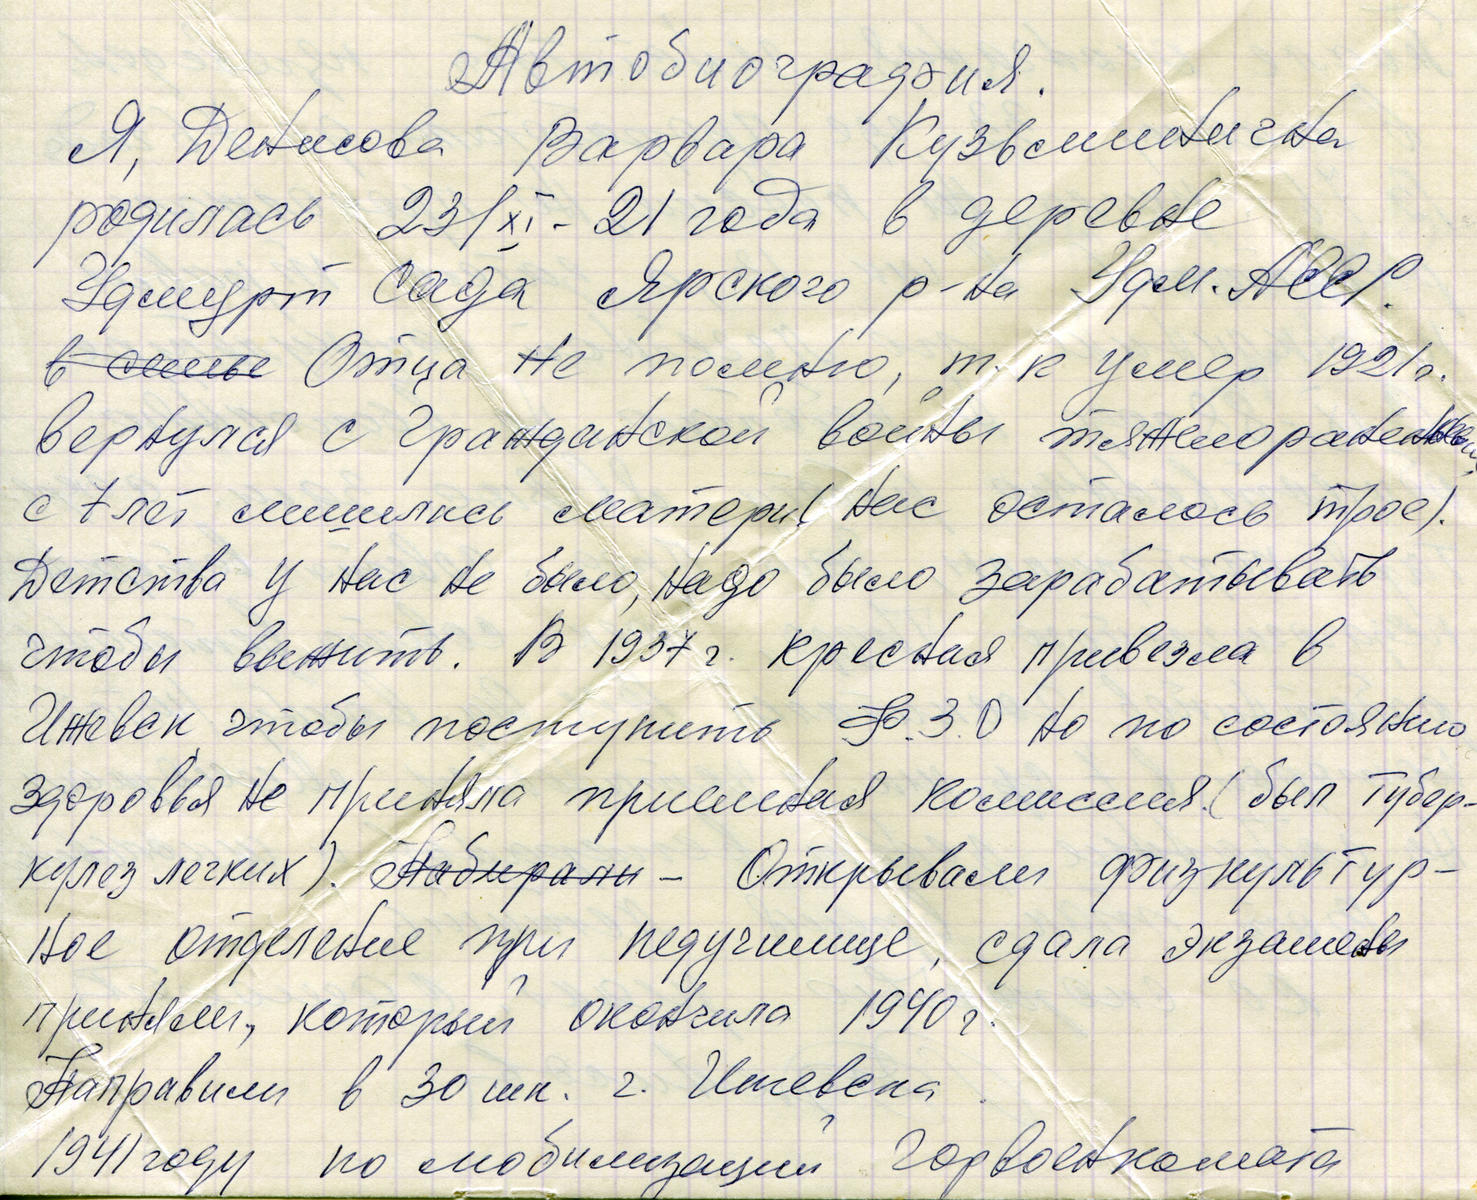 Автобиография.
Я, Денисова Варвара Кузьминична
родилась 23/XI - 21 года в деревне
Удмурт Сада Ярского р-на Удм. АССР.
в семье Отца не помню, т. к умер 1921 г.
вернулся с Гражданской войны тяжелораненный
с 7 лет лишилась матери (нас осталось трое).
Детства у нас не было, надо было зарабатывать
чтобы выжить. В 1937 г. кресная привезла в
Ижевск чтобы поступить Ф.З.О но по состоянию
здоровья не приняла приемная комиссия. (был тубер-
кулез легких). Набирали - Открывали физкультур-
ное отделение при педучилище, сдала экзамены
приняли, который окончила 1940 г.
Направили в 30 шк. г. Ижевска
1941 году по мобилизации Горвоенкомата